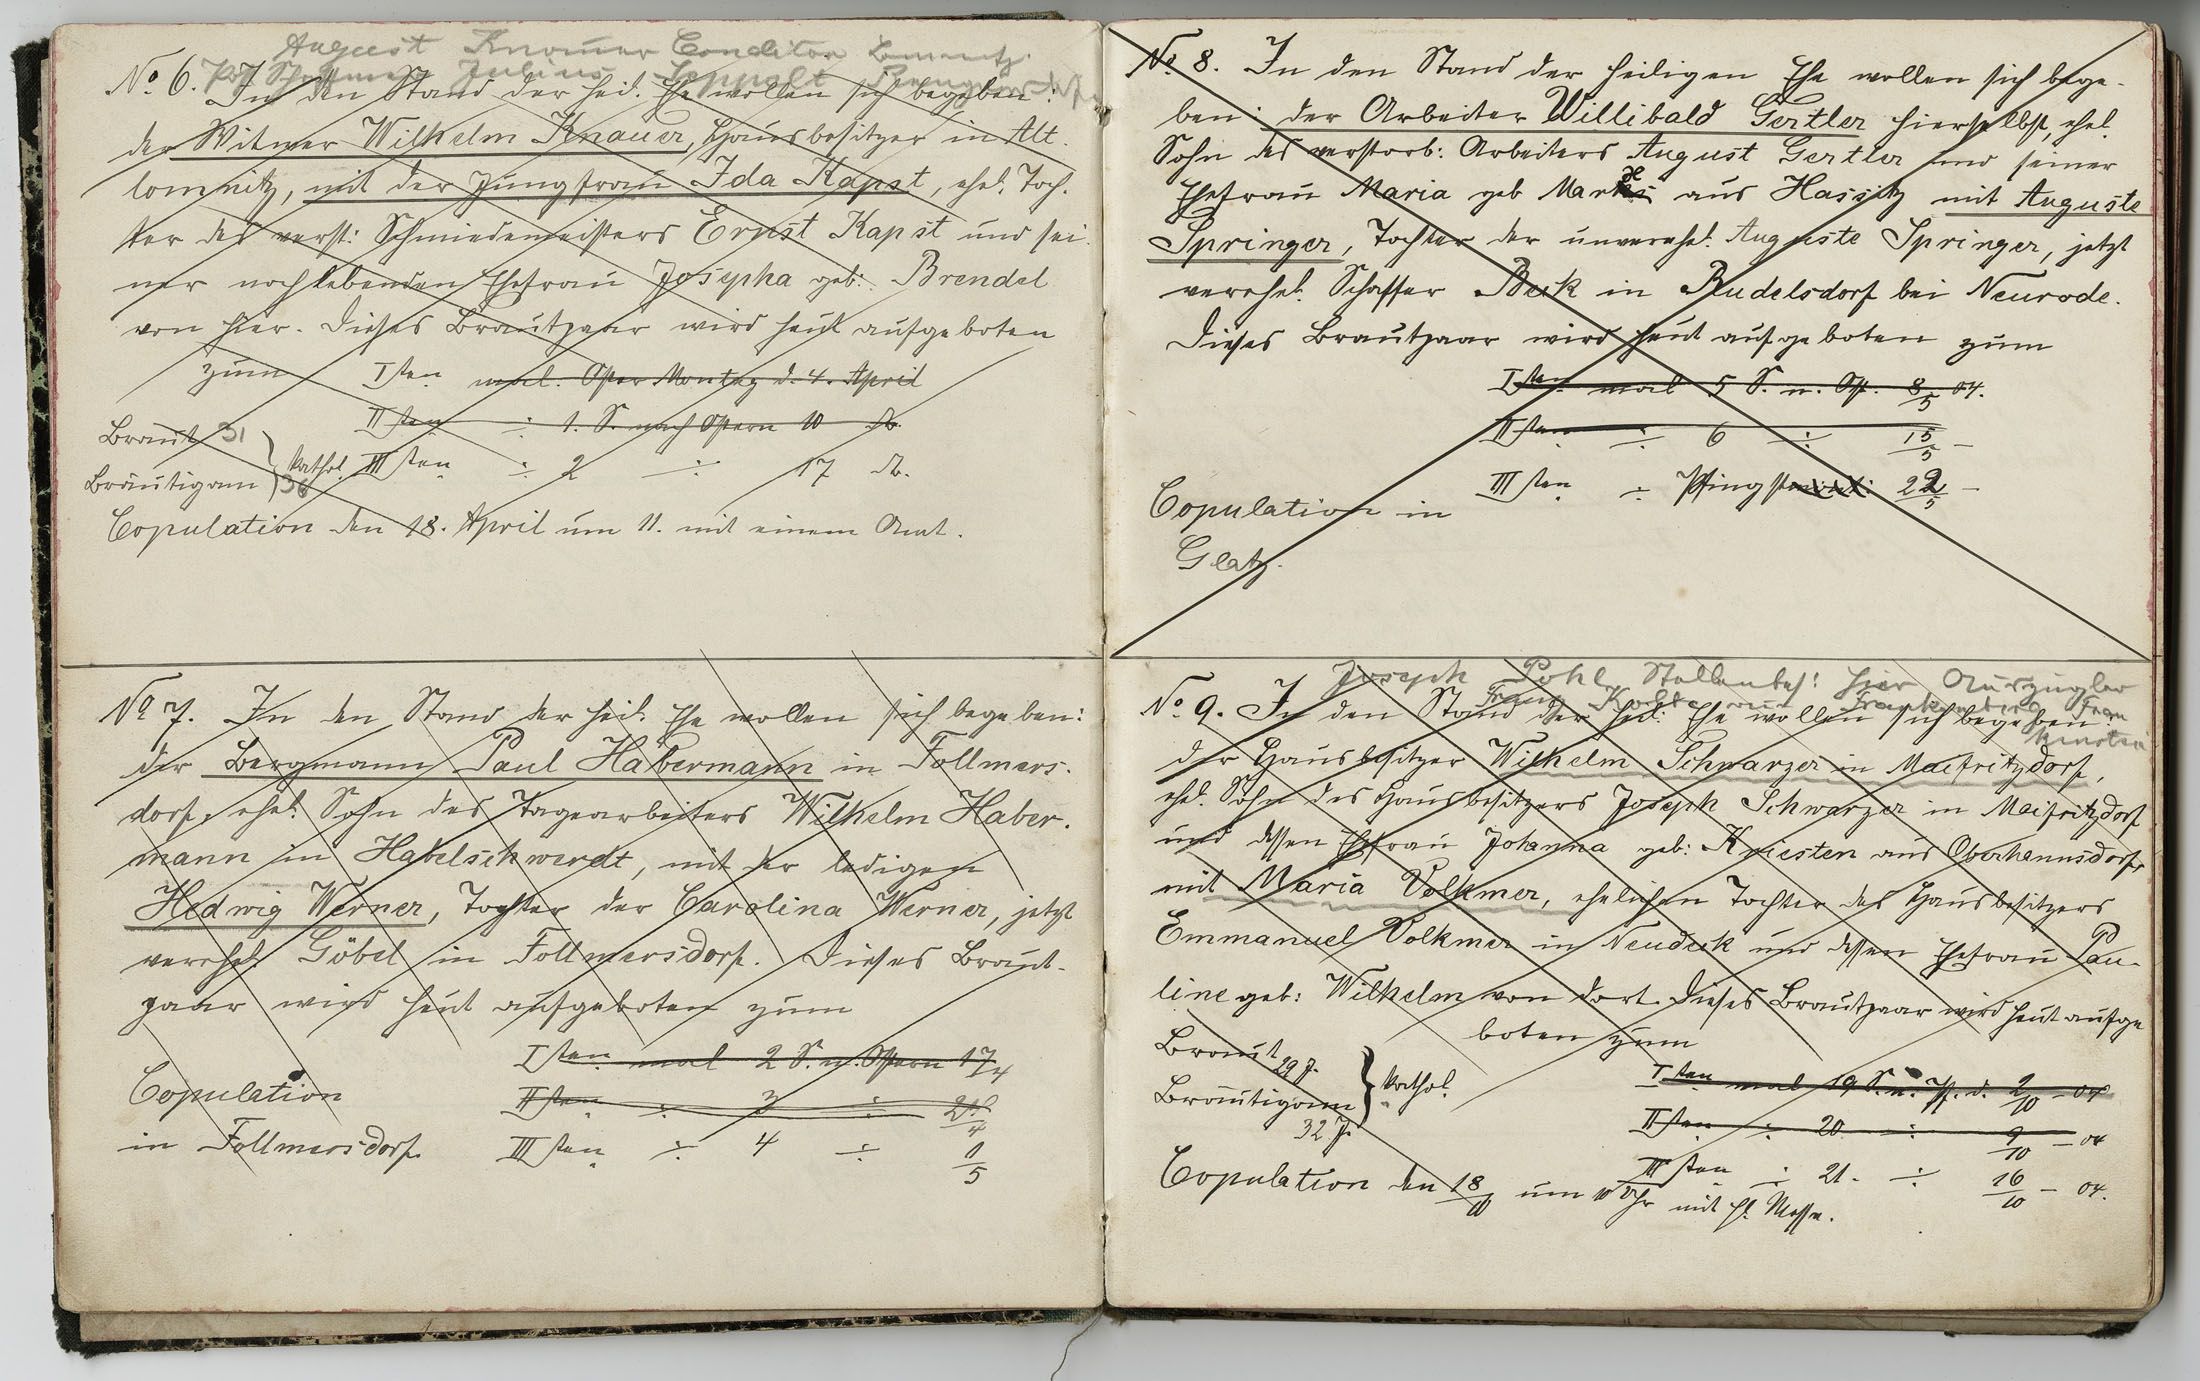 August Knauer Conditor Lomnitz
Julius
No 6. In den Stand der heil. Ehe wollen sich begeben:
der Witwer Wilhelm Knauer, Hausbesitzer in Alt
lomnitz, mit der Jungfrau Ida Kapst, ehel. Toch-
ter des verst: Schmiedemeisters Ernst Kapst und sei-
ner noch lebenden Ehefrau Josepha geb: Brendel
von hier. Dieses Brautpaar wird heut aufgeboten
zum Isten mal. Oster Montag d. 4. April
IIsten ÷ 1. S. nach Ostern 10 do.
Braut 31
Bräutigam 36 } kathol. IIIsten ÷ 2 ÷ 17 do.
Copulation den 18. April um 11. mit einem Amt.
No 7. In den Stand der heil. Ehe wollen sich begeben:
der Bergmann Paul Habermann in Follmers-
dorf, ehel. Sohn des Tagearbeiters Wilhelm Haber-
mann in Habelschwerdt, mit der ledigen
Hedwig Werner, Tochter der Carolina Werner, jetzt
verehel. Göbel in Follmersdorf. Dieses Braut-
paar wird heut aufgeboten zum
Isten mal 2 S. n. Ostern 17/4
Copulation IIsten ÷ 3 ÷ 24/4
in Follmersdorf. IIIsten ÷ 4 ÷ 1/5
No 8. In den Stand der heiligen Ehe wollen sich bege-
ben: der Arbeiter Willibald Gertler hierselbst, ehel.
Sohn des verstorb: Arbeiters August Gertler und seiner
Ehefrau Maria geb aus Hassitz mit Auguste
Springer, Tochter der unverehel. Auguste Springer, jetzt
verehel. Schaffer Beck in Rudelsdorf bei Neurode.
Dieses Brautpaar wird heut aufgeboten zum
Isten mal 5 S. n. Ost. 8/5 04.
IIsten ÷ 6 ÷ 15/5 –
Copulation in IIIsten ÷ Pfingst 22/5 –
Glatz.
Joseph Pohl Stellenbes: hier Auszügler
Franz
No 9. In den Stand der heil: Ehe wollen sich begeben:
der Hausbesitzer Wilhelm Schwarzer in Maifritzdorf,
ehel. Sohn des Hausbesitzers Joseph Schwarzer in Meifritzdorf
und dessen Ehefrau Johanna geb: Kriesten aus Oberhannsdorf,
mit Maria Volkmer, ehelichen Tochter des Hausbesitzers
Emmanuel Volkmer in Neudeck und dessen Ehefrau Pau-
line geb: Wilhelm von dort. Dieses Brautpaar wird heut aufge
boten zum
Braut 29 J.
Bräutigam 32 J. } kathol.
Isten mal 19 S. n. Pf. d. 2/10 – 04
IIsten ÷ 20 ÷ 9/10 – 04
IIIsten ÷ 21. ÷ 16/10 – 04.
Copulation den 18/10 um 10 Uhr mit hl. Messe.